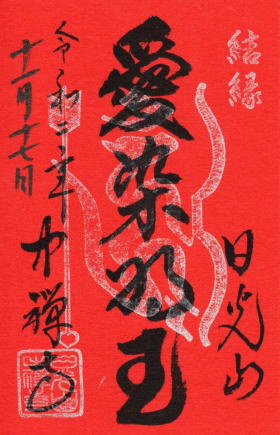 結縁
日光山
愛染明王
中禅寺
令和二年
十一月十七日